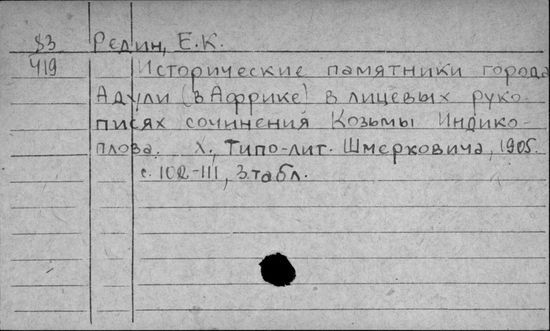 83 Редин, Е.К.
419 Исторические памятники города
Адули (в Африке) в лицевых руко-
писях сочинения Козьмы Индико-
плова. Х., Типо-лит. Шмерковича, 1905.
с. 102-111, 3 табл.